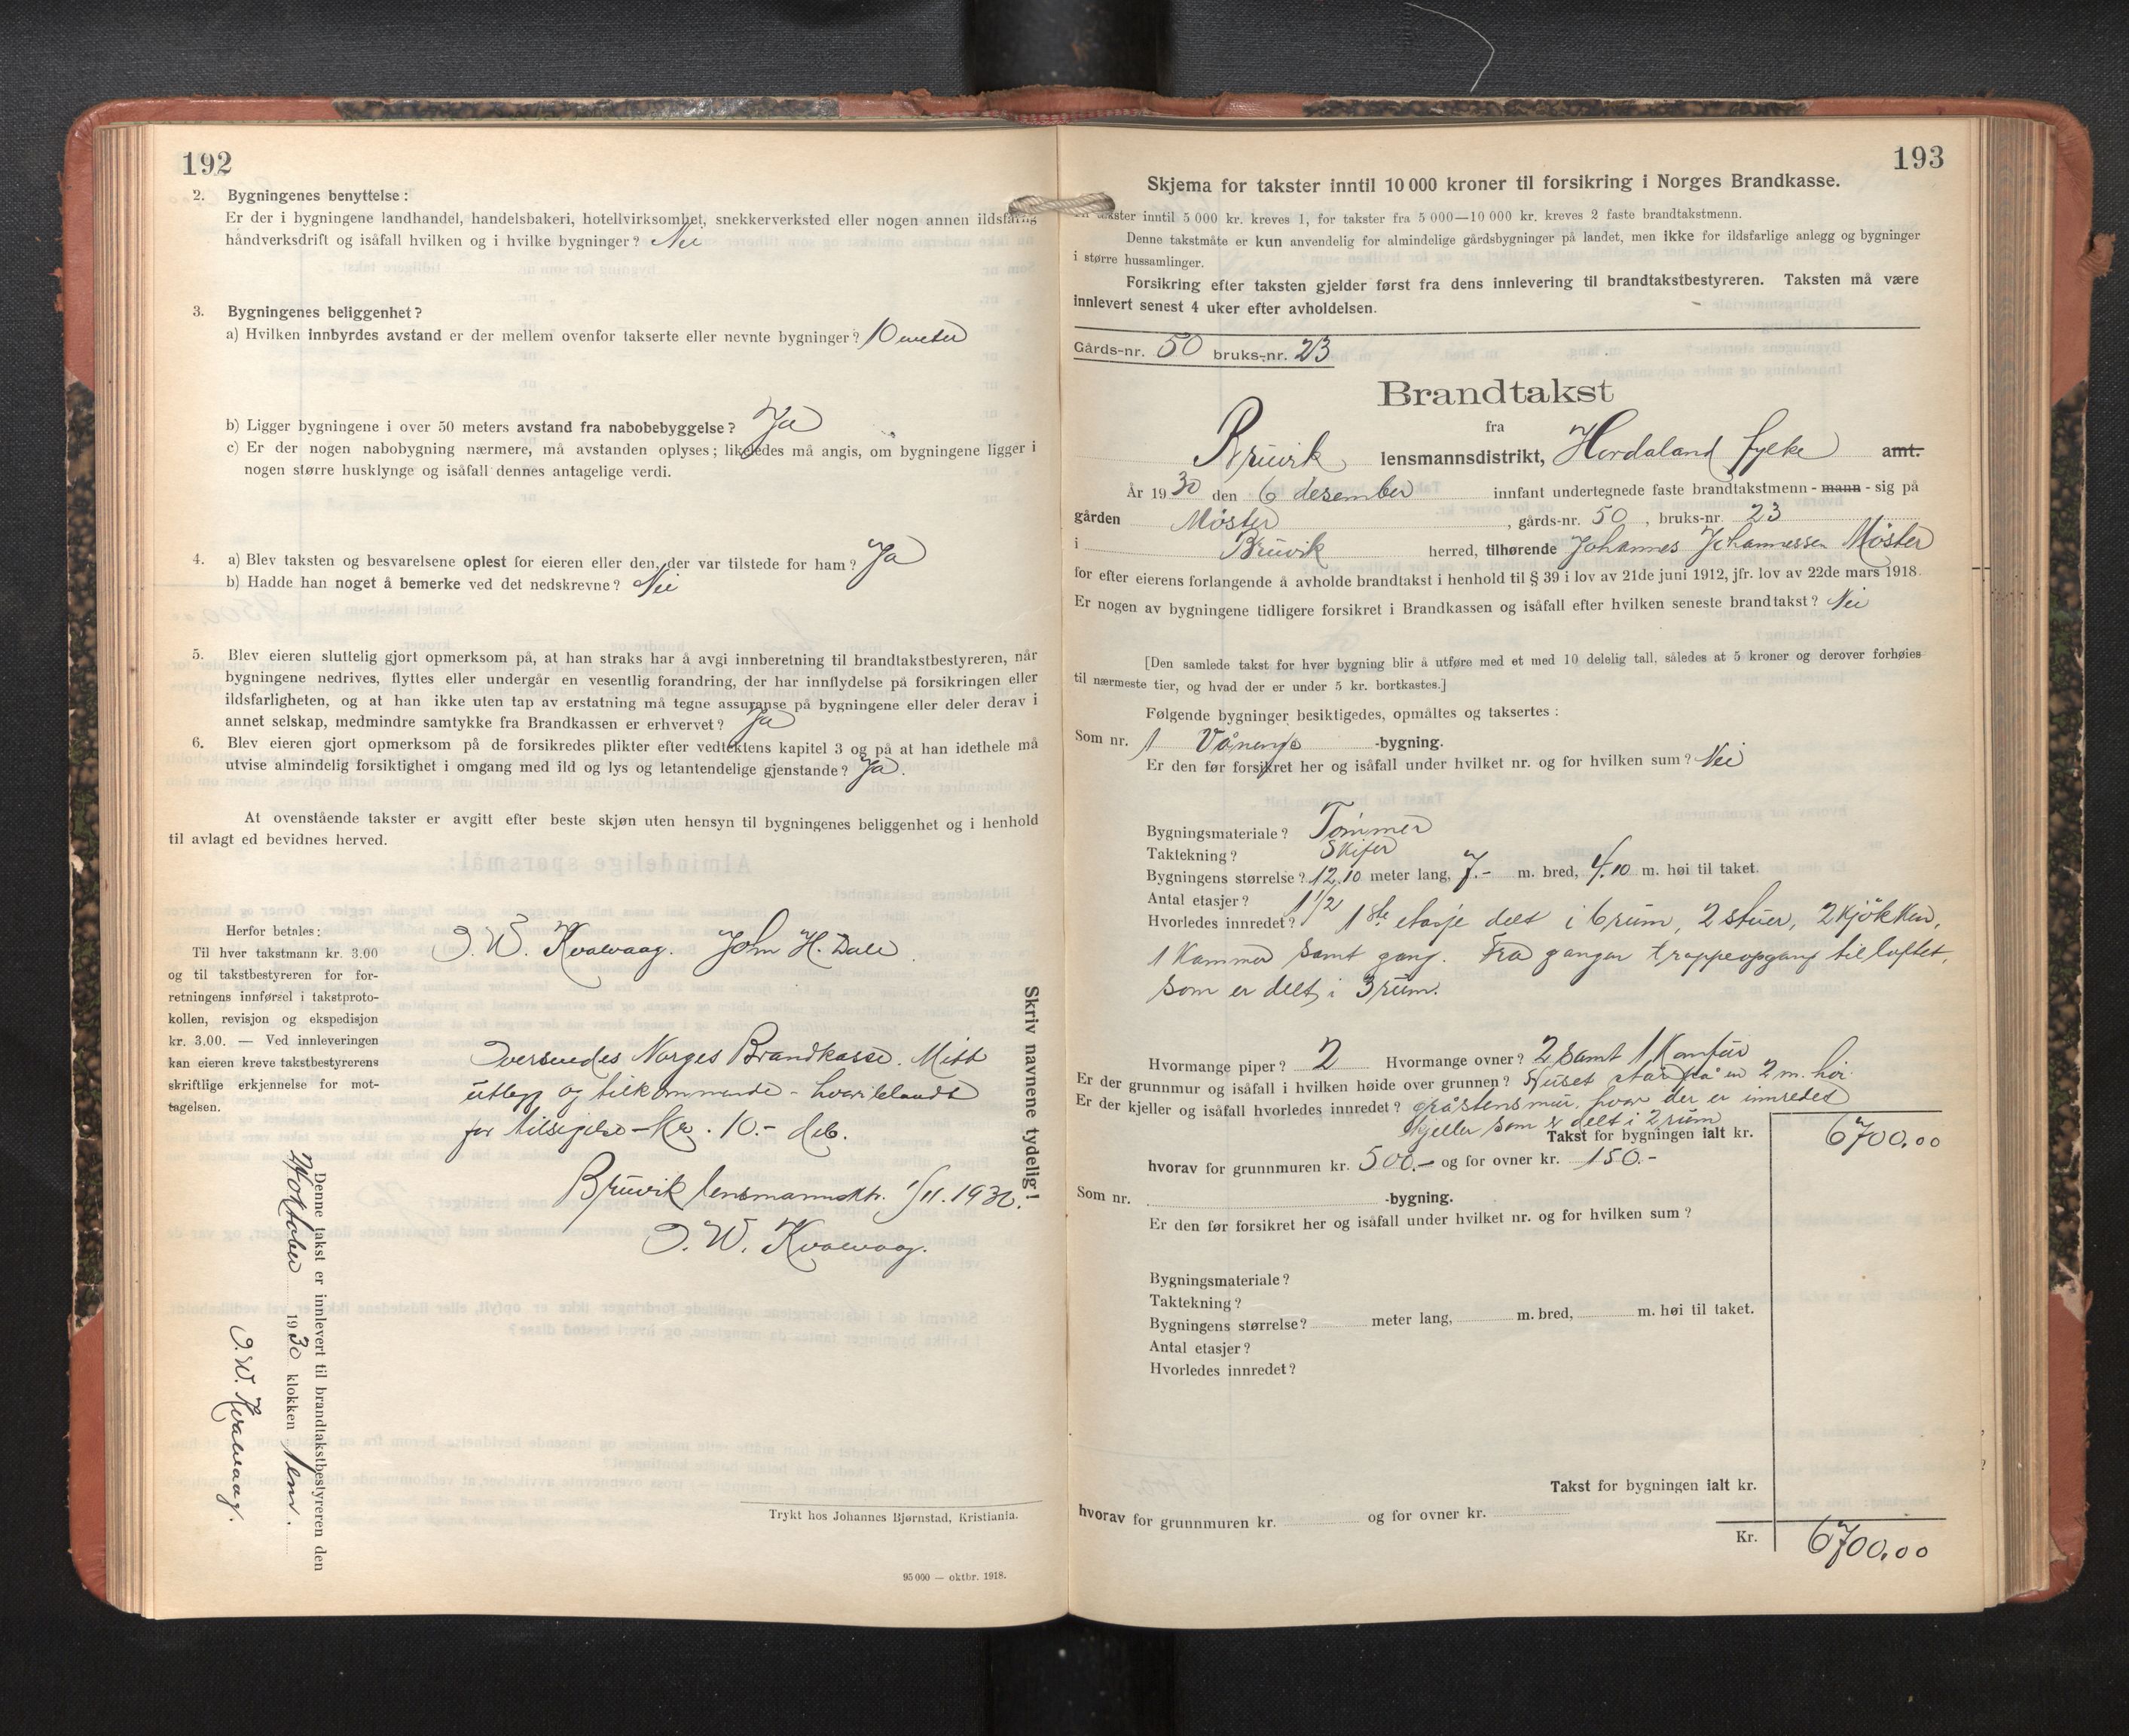 192
2. Bygningenes benyttelse:
Er der i bygningene landhandel, handelsbakeri, hotellvirksomhet, snekkerverksted eller nogen annen ildsfarlig
håndverksdrift og isåfall hvilken og i hvilke bygninger? Nei
3. Bygningenes beliggenhet?
a) Hvilken innbyrdes avstand er der mellem ovenfor takserte eller nevnte bygninger? 10 meter
b) Ligger bygningene i over 50 meters avstand fra nabobebyggelse? Ja
c) Er der nogen nabobygning nærmere, må avstanden oplyses; likeledes må angis, om bygningene ligger i
nogen større husklynge og isåfall dennes antagelige verdi.
4. a) Blev taksten og besvarelsene oplest for eieren eller den, der var tilstede for ham? Ja
b) Hadde han noget å bemerke ved det nedskrevne? Nei
5. Blev eieren sluttelig gjort opmerksom på, at han straks har å avgi innberetning til brandtakstbestyreren, når
bygningene nedrives, flyttes eller undergår en vesentlig forandring, der har innflydelse på forsikringen eller
ildsfarligheten, og at han ikke uten tap av erstatning må tegne assuranse på bygningene eller deler derav i
annet selskap, medmindre samtykke fra Brandkassen er erhvervet? Ja
6. Blev eieren gjort opmerksom på de forsikredes plikter efter vedtektens kapitel 3 og på at han idethele må
utvise almindelig forsiktighet i omgang med ild og lys og letantendelige gjenstande? Ja.
At ovenstående takster er avgitt efter beste skjøn uten hensyn til bygningenes beliggenhet og i henhold
til avlagt ed bevidnes herved.
O. W. Kvalvaag. John H. Dale.
Herfor betales:
Til hver takstmann kr. 3.00
og til takstbestyreren for for-
retningens innførsel i takstproto-
kollen, revisjon og ekspedisjon
kr. 3.00. — Ved innleveringen
kan eieren kreve takstbestyrerens
skriftlige erkjennelse for mot-
tagelsen.
Oversendes Norges Brandkasse. Mitt
utlegg og tilkommende - hvoriblandt
for tilsigelse - kr. 10.- deb.
Bruvik lensmannsktr. 1/11. 1930.
O. W. Kvalvaag.
Skriv navnene tydelig!
Denne takst er innlevert til brandtakstbestyreren den
oktober 1930 klokken
O. W. Kvalvaag.
Trykt hos Johannes Bjørnstad, Kristiania.
95 000 — oktbr. 1918.
193
Skjema for takster inntil 10 000 kroner til forsikring i Norges Brandkasse.
takster inntil 5 000 kr. kreves 1, for takster fra 5 000—10 000 kr. kreves 2 faste brandtakstmenn.
Denne takstmåte er kun anvendelig for almindelige gårdsbygninger på landet, men ikke for ildsfarlige anlegg og bygninger
i større hussamlinger.
Forsikring efter taksten gjelder først fra dens innlevering til brandtakstbestyreren. Taksten må være
innlevert senest 4 uker efter avholdelsen.
Gårds-nr. 50 bruks-nr. 23
Brandtakst
fra
Bruvik lensmannsdistrikt, Hordaland fylke amt.
År 1930 den 6 desember innfant undertegnede faste brandtakstmenn - mann - sig på
gården Møster, gårds-nr. 50, bruks-nr. 23
i Bruvik herred, tilhørende Johannes Johannessen Møster
for efter eierens forlangende å avholde brandtakst i henhold til § 39 i lov av 21de juni 1912, jfr. lov av 22de mars 1918.
Er nogen av bygningene tidligere forsikret i Brandkassen og isåfall efter hvilken seneste brandtakst? Nei
[Den samlede takst for hver bygning blir å utføre med et med 10 delelig tall, således at 5 kroner og derover forhøies
til nærmeste tier, og hvad der er under 5 kr. bortkastes.]
Følgende bygninger besiktigedes, opmåltes og taksertes:
Som nr. 1 Vånings -bygning.
Er den før forsikret her og isåfall under hvilket nr. og for hvilken sum? Nei
Bygningsmateriale? Tømmer
Taktekning? Skifer
Bygningens størrelse? 12.10 meter lang, 7.- m. bred, 4.10 m. høi til taket.
Antal etasjer? 1 1/2
Hvorledes innredet? 1ste etasje delt i 6 rum, 2 stuer, 2 kjøkken,
1 kammer samt gang. Fra gangen trappeopgang til loftet,
som er delt i 3 rum.
Hvormange piper? 2 Hvormange ovner? 2 samt 1 komfur
Er der grunnmur og isåfall i hvilken høide over grunnen? Huset står på en 2 m. høi
Er der kjeller og isåfall hvorledes innredet? gråstensmur, hvor der er innredet
kjeller som er delt i 2 rum
Takst for bygningen ialt kr. 6700.00
hvorav for grunnmuren kr. 500.- og for ovner kr. 150.-
Som nr. -bygning.
Er den før forsikret her og isåfall under hvilket nr. og for hvilken sum?
Bygningsmateriale?
Taktekning?
Bygningens størrelse? meter lang, m. bred, m. høi til taket.
Antal etasjer?
Hvorledes innredet?
Takst for bygningen ialt kr.
hvorav for grunnmuren kr. og for ovner kr.
Kr. 6700.00